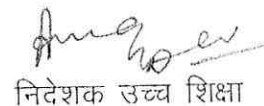 निदेशक उच्च शिक्षा